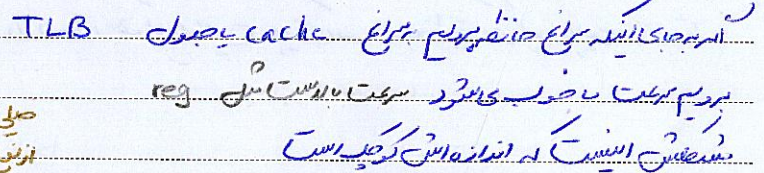 اگر به جای اینکه سراغ حافظه برویم سراغ cache یا جدول TLB
برویم سرعت ما خوب می شود سرعت بالاست مثل reg
مشکلش اینست که اندازه اش کوچک است